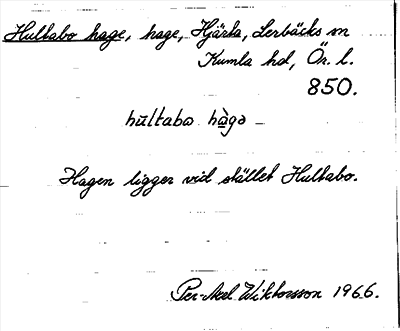 Hultabo hage, hage, Hjärta, Lerbäcks sn
Kumla hd, Ör. l.
850.
hùltabo hàgə
Hagen ligger vid stället Hultabo.
Per-Axel Wiktorsson 1966.